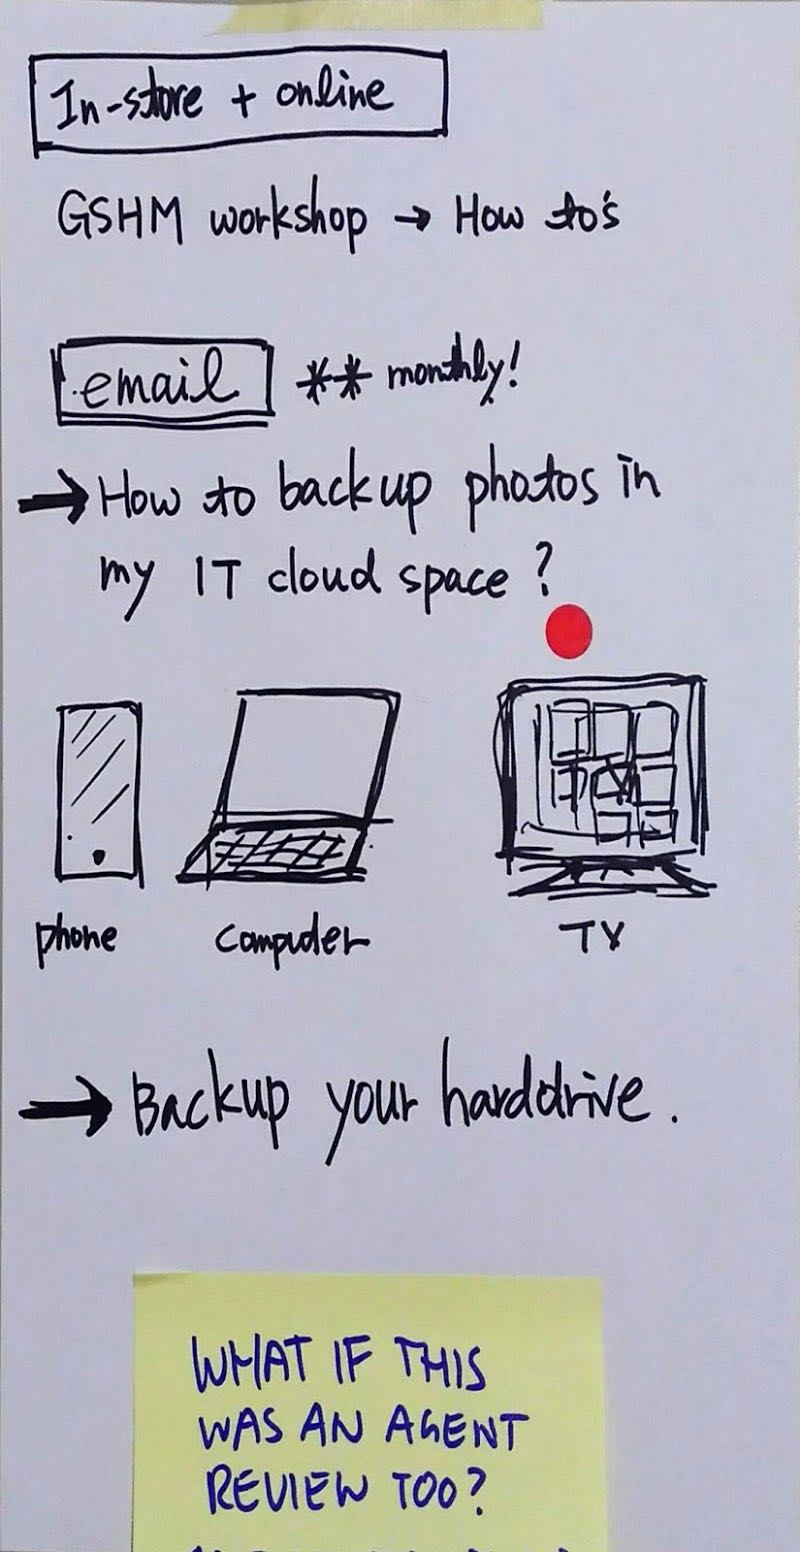 In-store + online
GSHM workshop → How to's
email ** monthly!
→ How to backup photos in
my IT cloud space?
phone computer TV
→ Backup your harddrive.
WHAT IF THIS
WAS AN AGENT
REVIEW TOO?